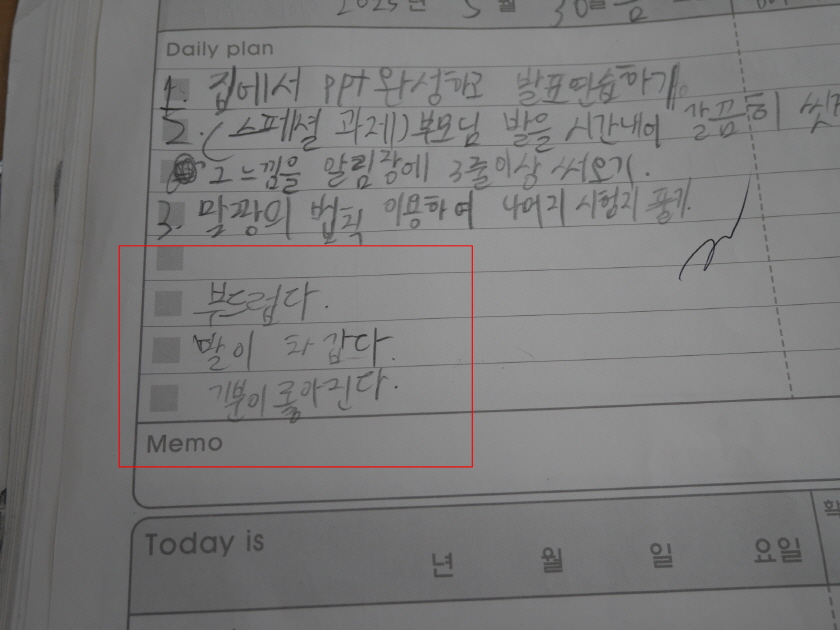 2025년 5월 30일 금
Daily plan
1. 집에서 ppt완성하고 발표연습하기.
2. (스페셜 과제)부모님 발을 시간내어 깔끔히 씻
그 느낌을 알림장에 3줄이상 써오기.
3. 말짱의 법칙 이용하여 나머지 시험지 풀기.
부드럽다.
발이 차갑다.
기분이 좋아진다.
Memo
Today is 년 월 일 요일